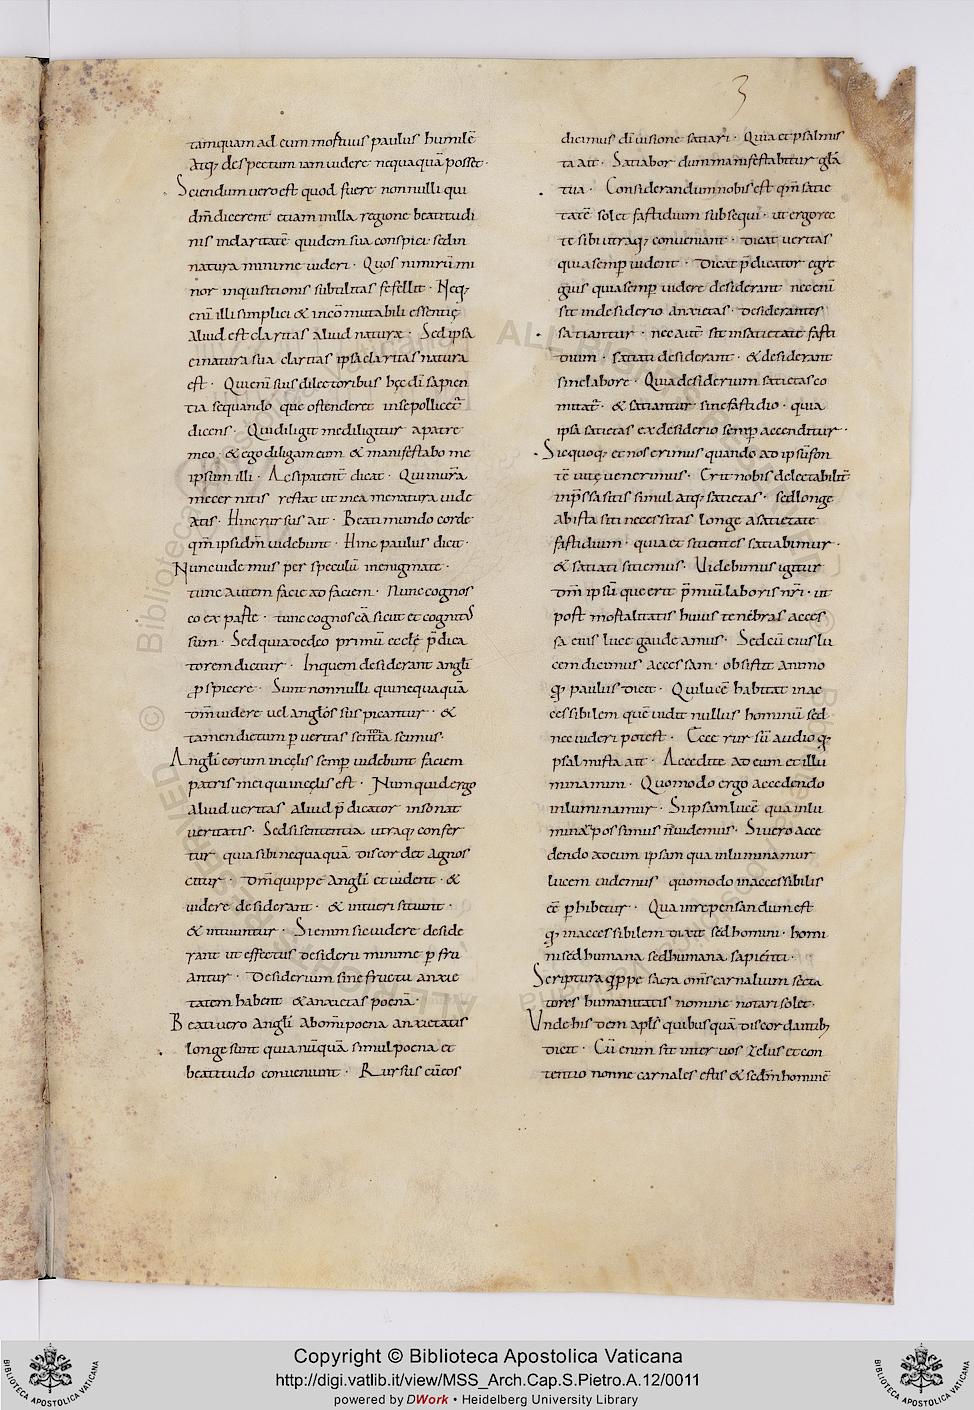 3
tamquam ad eum mortuus paulus humile̅
Atq; despectum iam uidere nequaqua̅ posset·
Sciendum uero est quod fuere nonnulli qui
dm̅ dicerent etiam in illa regione beatitudi
nis in claritate̅ quidem sua conspici· sed in
natura minime uideri · Quos nimiru̅ mi
nor inquisitionis subtilitas fefellit · Neq;
eni̅ illi simplici & inco̅mutabili essentię
Aliud est claritas aliud natura · Sed ipsa
ei natura sua claritas ipsa claritas natura
est · Qui eni̅ suis dilectoribus hęc di̅ sapien
tia se quando que ostenderet in se pollicet̅
dicens · Qui diligit me diligitur a patre
meo · & ego diligam eum & manifestabo me
ipsum illi · Ac si patent̅ dicat · Qui in ur̅a
me cernitis restat ut in ea me natura uide
atis · Hinc rursus ait · Beati mundo corde
qm̅ ipsi dm̅ uidebunt · Hinc paulus dicit ·
Nunc uidemus per speculu̅ in enigmate ·
tunc autem facie ad faciem · Nunc cognos
co ex parte · tunc cognosca̅ sicut et cognitus
sum · Sed quia de deo primu̅ eccle̅ p̅dica
torem dicitur · In quem desiderant angli̅
p̱spicere · Sunt nonnulli qui nequaqua̅
dm̅ uidere uel anglos̅ suspicantur · &
tamen dictum p̱ ueritas sentm̅tia scimus·
Angli̅ eorum in cęlis semp̱ uidebunt faciem
patris mei qui in cęlis est · Num quid ergo
aliud ueritas aliud p̅dicator insonat
ueritatis · Sed si sententia utraq; confer
tur quia sibi nequaqua̅ discordet agnos
citur · dm̅ quippe Angli̅ et uident · &
uidere desiderant · & intueri sitiunt ·
& intuuntur · Si enim sic uidere deside
rant ut effectus desiderii minime p̱ fru
antur · Desiderium sine fructu anxie
tatem habent & anxietas poena̅ ·
Beati uero Angli̅ Ab om̅i poena anxietatis
longe sunt quia nu̅qua̅ simul poena et
beatitudo conueniunt · Rursus cu̅ eos
dicimus di̅ uisione satiari · Quia et psalmis
ta ait · Satiabor dum manifestabitur gla̅
tua · Considerandum nobis est qm̅ satie
tate̅ solet fastidium subsequi · ut ergo rec
te sibi utraq; conueniant · dicat ueritas
quia semp̱ uident · Dicat p̅dicator egre
gius quia semp̱ uidere desiderant nec eni̅
sit in desiderio anxietas · desiderantes
satiantur · nec aut̅ sit in satietate fasti
dium · satiati desiderant · & desiderant
sine labore · Quia desiderium satietas co
mitat̅ · & satiantur sine fastidio · quia
ipsa satietas ex desiderio semp̱ accenditur ·
Sic quoq; et nos erimus quando ad ipsu̅ fon
te̅ uitę uenerimus · Erit nobis delectabilit̅
inp̅ssa sitis simul atq; satietas · sed longe
Abista siti necessitas longe a satietate
fastidium · quia et sitientes satiabimur ·
& satiati sitiemus · Uidebimus igitur
dm̅ ipsu̅ que erit p̅miu̅ laboris nr̅i · ut
post mortalitatis huius tenebras acces
sa eius luce gaudeamus · Sed cu̅ eius lu
cem dicimus accessam · obsistit animo
q; paulus dicit · Qui luce̅ habitat inac
cessibilem que̅ uidit nullus hominu̅ sed
nec uideri potest · Ecce rursu̅ audio q;
psalmista ait · Accedite ad eum et illu
minamini · Quomodo ergo accedendo
inluminamur · Si ipsam luce̅ qua inlu
minari possimus n̅ uidemus · Si uero acce
dendo ad eum ipsam qua inluminamur
lucem uidemus quomodo inaccessibilis
ee̅ p̱hibetur · Qua in re pensandum est
q; inaccessibilem dixit sed homini · homi
ni sed humana sed humana sapienti ·
Scriptura q̱ppe sacra om̅s carnalium secta
tores humanitatis nomine notari solet ·
Unde his dem apl̅s quibusqua̅ discordantib;
dicit · Cu̅ enim sit inter uos zelus et con
tentio nonne carnales estis & sed̅m homine̅
Copyright © Biblioteca Apostolica Vaticana
http://digi.vatlib.it/view/MSS_Arch.Cap.S.Pietro.A.12/0011
powered by DWork • Heidelberg University Library